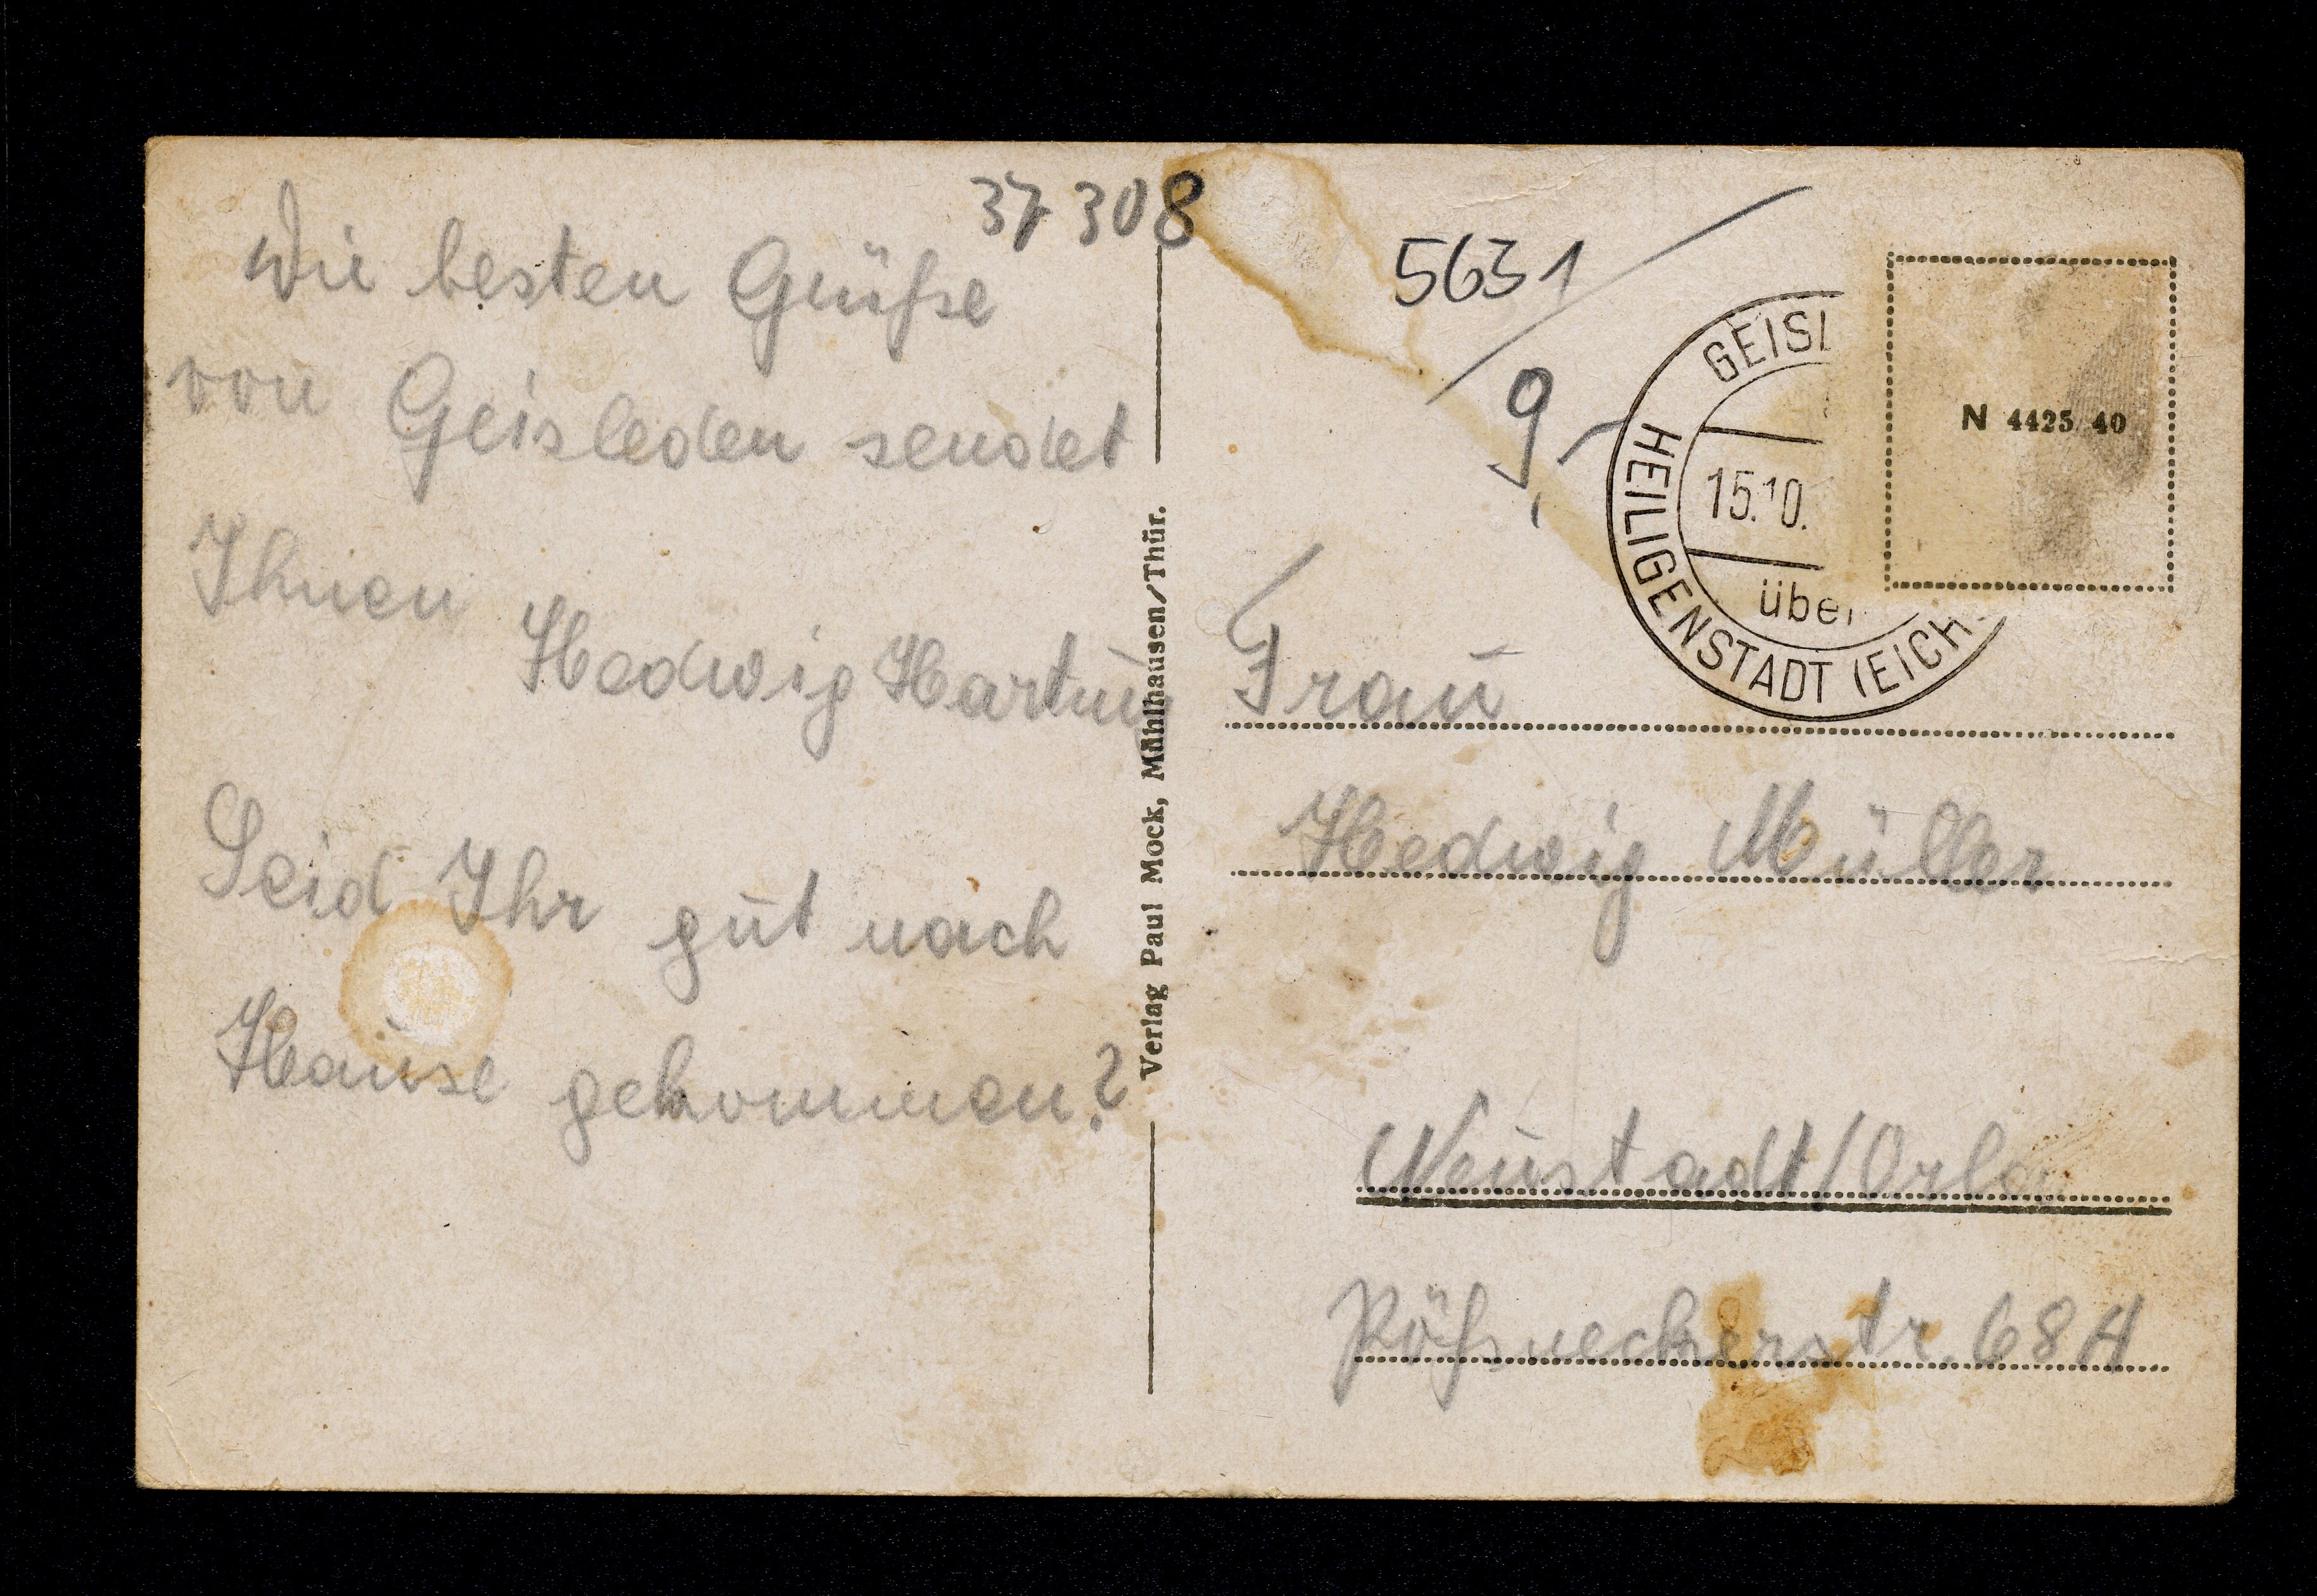 37 308
Die besten Grüße
von Geisleden sendet
Ihnen
Hedwig Hartung
Seid Ihr gut nach
Hause gekommen?
Verlag Paul Mock, Mühlhausen/Thür.
5631
9,-
GEISL
15.10.
über
HEILIGENSTADT (EICH
N 4425 40
Frau
Hedwig Müller
Neustadt/Orla
Pößneckerstr. 68 A